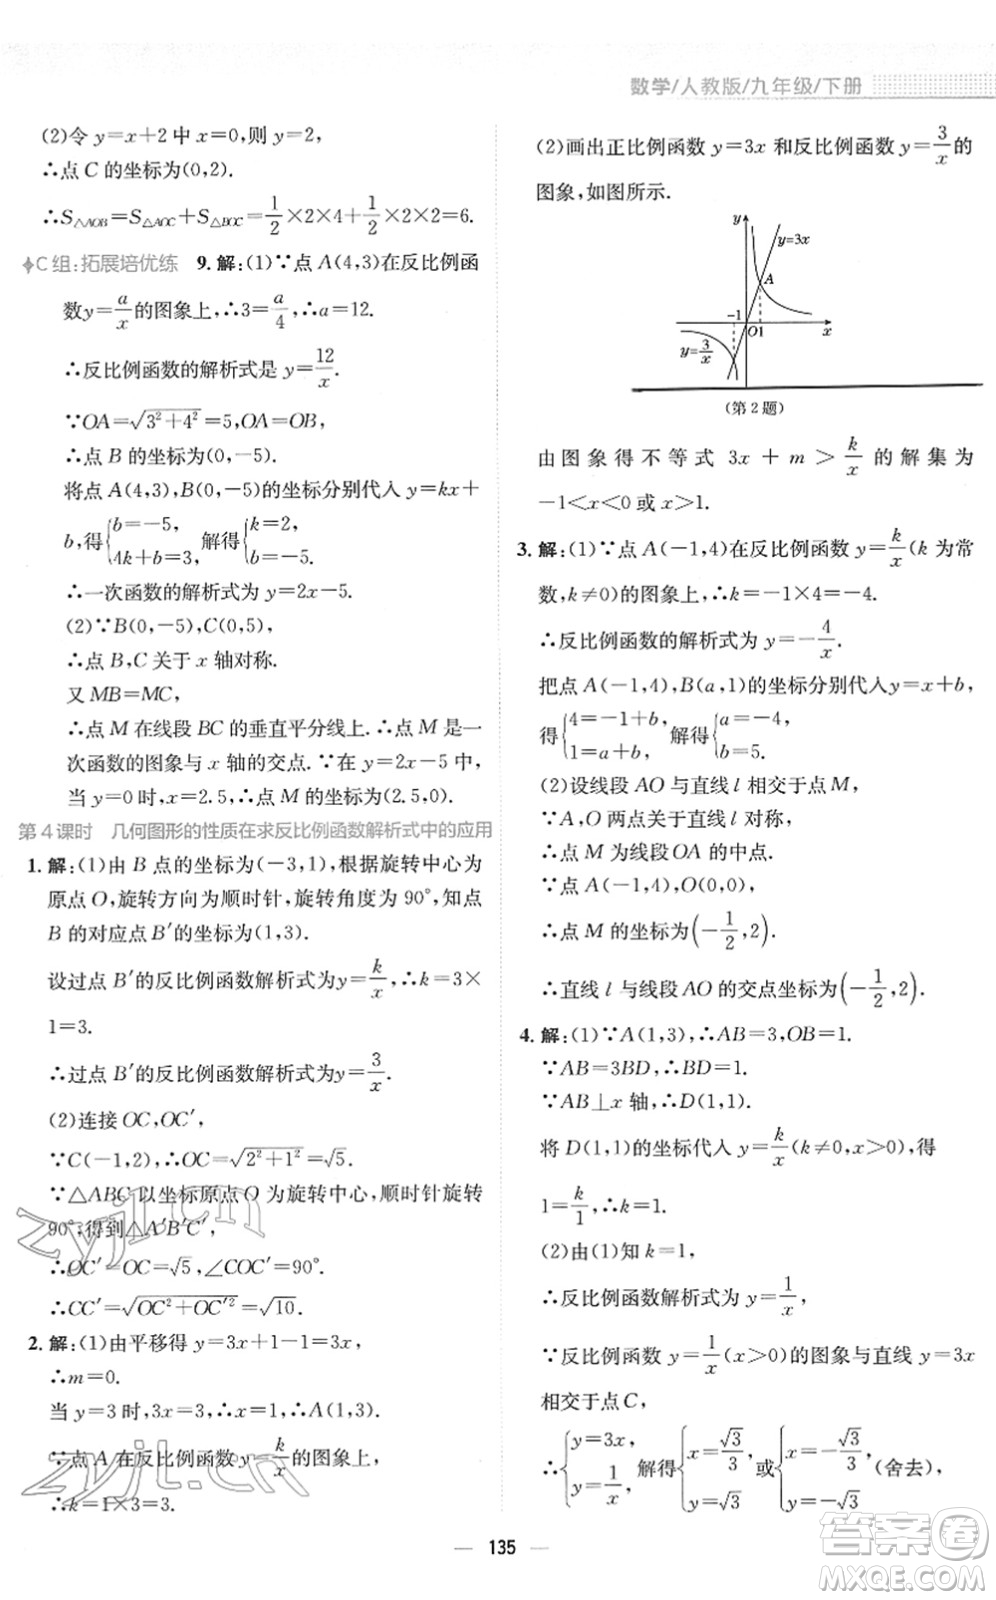 数学/人教版/九年级/下册
(2)令 y=x+2 中 x=0,则 y=2,
∴点 C 的坐标为(0,2).
∴S△AOB=S△AOC+S△BOC=1/2×2×4+1/2×2×2=6.
C 组:拓展培优练 9. 解:(1)∵点 A(4,3)在反比例函
数y=a/x的图象上,∴3=a/4,∴a=12.
∴反比例函数的解析式是 y=12/x.
∵OA=√(3²+4²)=5,OA=OB,
∴点 B 的坐标为(0,-5).
将点 A(4,3),B(0,-5)的坐标分别代入 y=kx+
b,得{b=-5, 4k+b=3, 解得{k=2, b=-5.
∴一次函数的解析式为 y=2x-5.
(2)∵B(0,-5),C(0,5),
∴点 B,C 关于 x 轴对称.
又 MB=MC,
∴点 M 在线段 BC 的垂直平分线上.∴点 M 是一
次函数的图象与 x 轴的交点.∵在 y=2x-5 中,
当 y=0 时,x=2.5,∴点 M 的坐标为(2.5,0).
第 4 课时 几何图形的性质在求反比例函数解析式中的应用
1. 解:(1)由 B 点的坐标为(-3,1),根据旋转中心为
原点 O,旋转方向为顺时针,旋转角度为 90°,知点
B 的对应点B′的坐标为(1,3).
设过点 B′的反比例函数解析式为y=k/x,∴k=3×
1=3.
∴过点 B′的反比例函数解析式为y=3/x.
(2)连接 OC,OC′,
∵C(-1,2),∴OC=√(2²+1²)=√5.
∵△ABC 以坐标原点 O 为旋转中心,顺时针旋转
90°,得到△A′B′C′,
∴OC′=OC=√5,∠COC′=90°.
∴CC′=√(OC²+OC′²)=√10.
2. 解:(1)由平移得 y=3x+1-1=3x,
∴m=0.
当 y=3 时,3x=3,∴x=1,∴A(1,3).
∵点 A 在反比例函数 y=k/x的图象上,
∴k=1×3=3.
(2)画出正比例函数 y=3x 和反比例函数 y=3/x的
图象,如图所示.
y
y=3x
A
-1
O1
x
y=3/x
(第 2 题)
由图象得不等式 3x+m>k/x的解集为
-1<x<0 或 x>1.
3. 解:(1)∵点 A(-1,4)在反比例函数 y=k/x(k 为常
数,k≠0)的图象上,∴k=-1×4=-4.
∴反比例函数的解析式为 y=-4/x.
把点 A(-1,4),B(a,1)的坐标分别代入y=x+b,
得{4=-1+b, 1=a+b, 解得{a=-4, b=5.
(2)设线段 AO 与直线 l 相交于点 M,
∵A,O 两点关于直线 l 对称,
∴点 M 为线段OA 的中点.
∵点 A(-1,4),O(0,0),
∴点 M 的坐标为(-1/2,2).
∴直线 l 与线段 AO 的交点坐标为(-1/2,2).
4. 解:(1)∵A(1,3),∴AB=3,OB=1.
∵AB=3BD,∴BD=1.
∵AB⊥x 轴,∴D(1,1).
将 D(1,1)的坐标代入 y=k/x(k≠0,x>0),得
1=k/1,∴k=1.
(2)由(1)知 k=1,
∴反比例函数解析式为 y=1/x,
∵反比例函数 y=1/x(x>0)的图象与直线 y=3x
相交于点 C,
∴{y=3x, y=1/x, 解得{x=√3/3, y=√3 或{x=-√3/3, y=-√3 (舍去),
135
zyjl.cn
zyjl.cn
答案卷
MXQE.COM